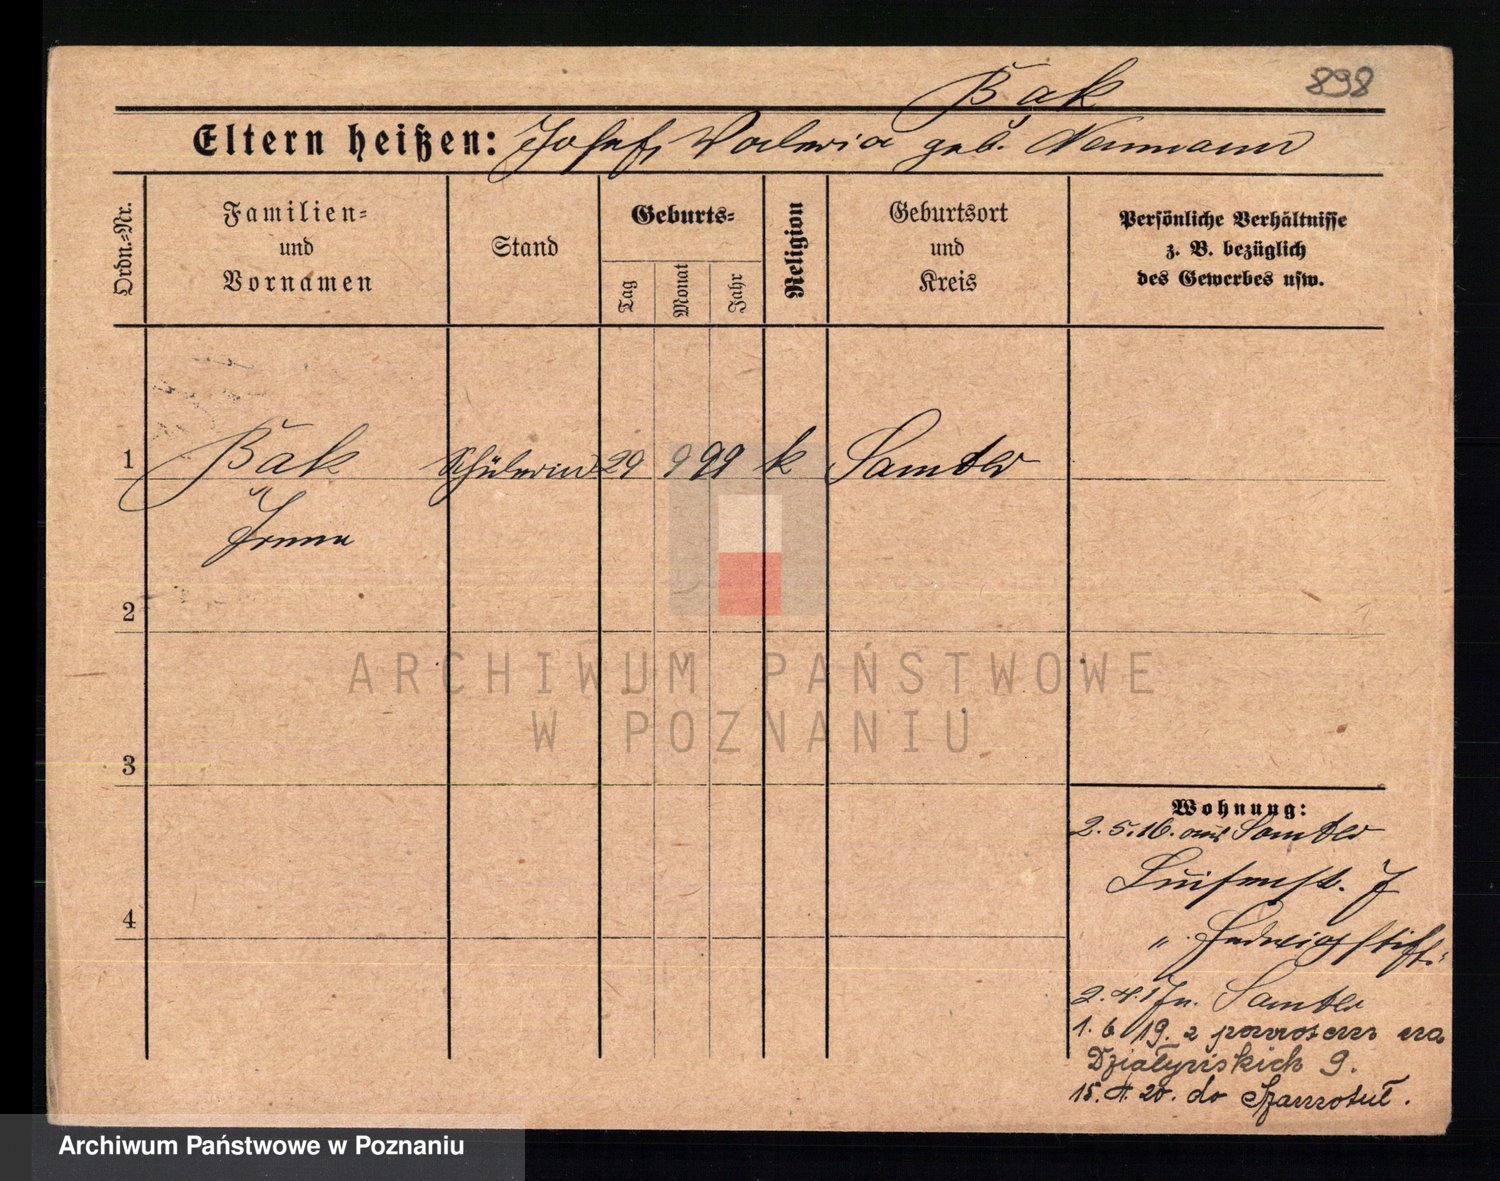 898
Bąk
Eltern heißen: Josef, Valeria geb. Neumann
Ordn.=Nr.
Familien=
und
Vornamen
Stand
Geburts=
Tag
Monat
Jahr
Religion
Geburtsort
und
Kreis
Persönliche Verhältnisse
z. B. bezüglich
des Gewerbes usw.
1 Bąk Schülerin 29 9 99 k Samter
Irma
2
3
4
Wohnung:
2.5.16. aus Samter
Luisenst. 7
" Hedwigstift.
2.4.17 n. Samter
1. 6 19. z powrotem na
Działyńskich 9.
15. 4. 20. do Szamotuł.
ARCHIWUM PAŃSTWOWE
W POZNANIU
Archiwum Państwowe w Poznaniu